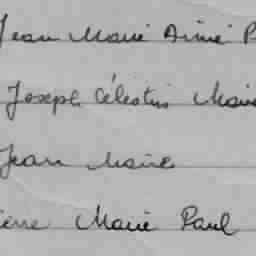 Jean Marie Aimé P
Joseph Célestin Marie
Jean Marie
ierre Marie Paul